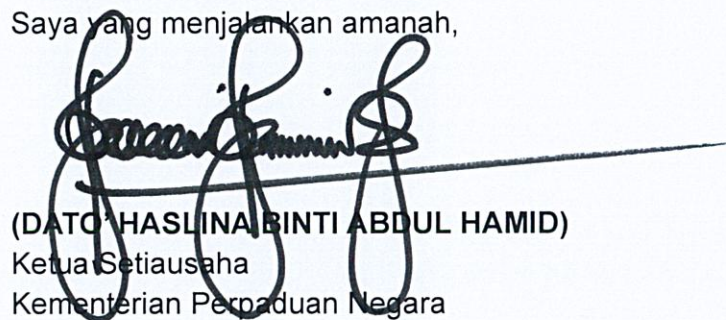 Saya yang menjalankan amanah,
(DATO' HASLINA BINTI ABDUL HAMID)
Ketua Setiausaha
Kementerian Perpaduan Negara